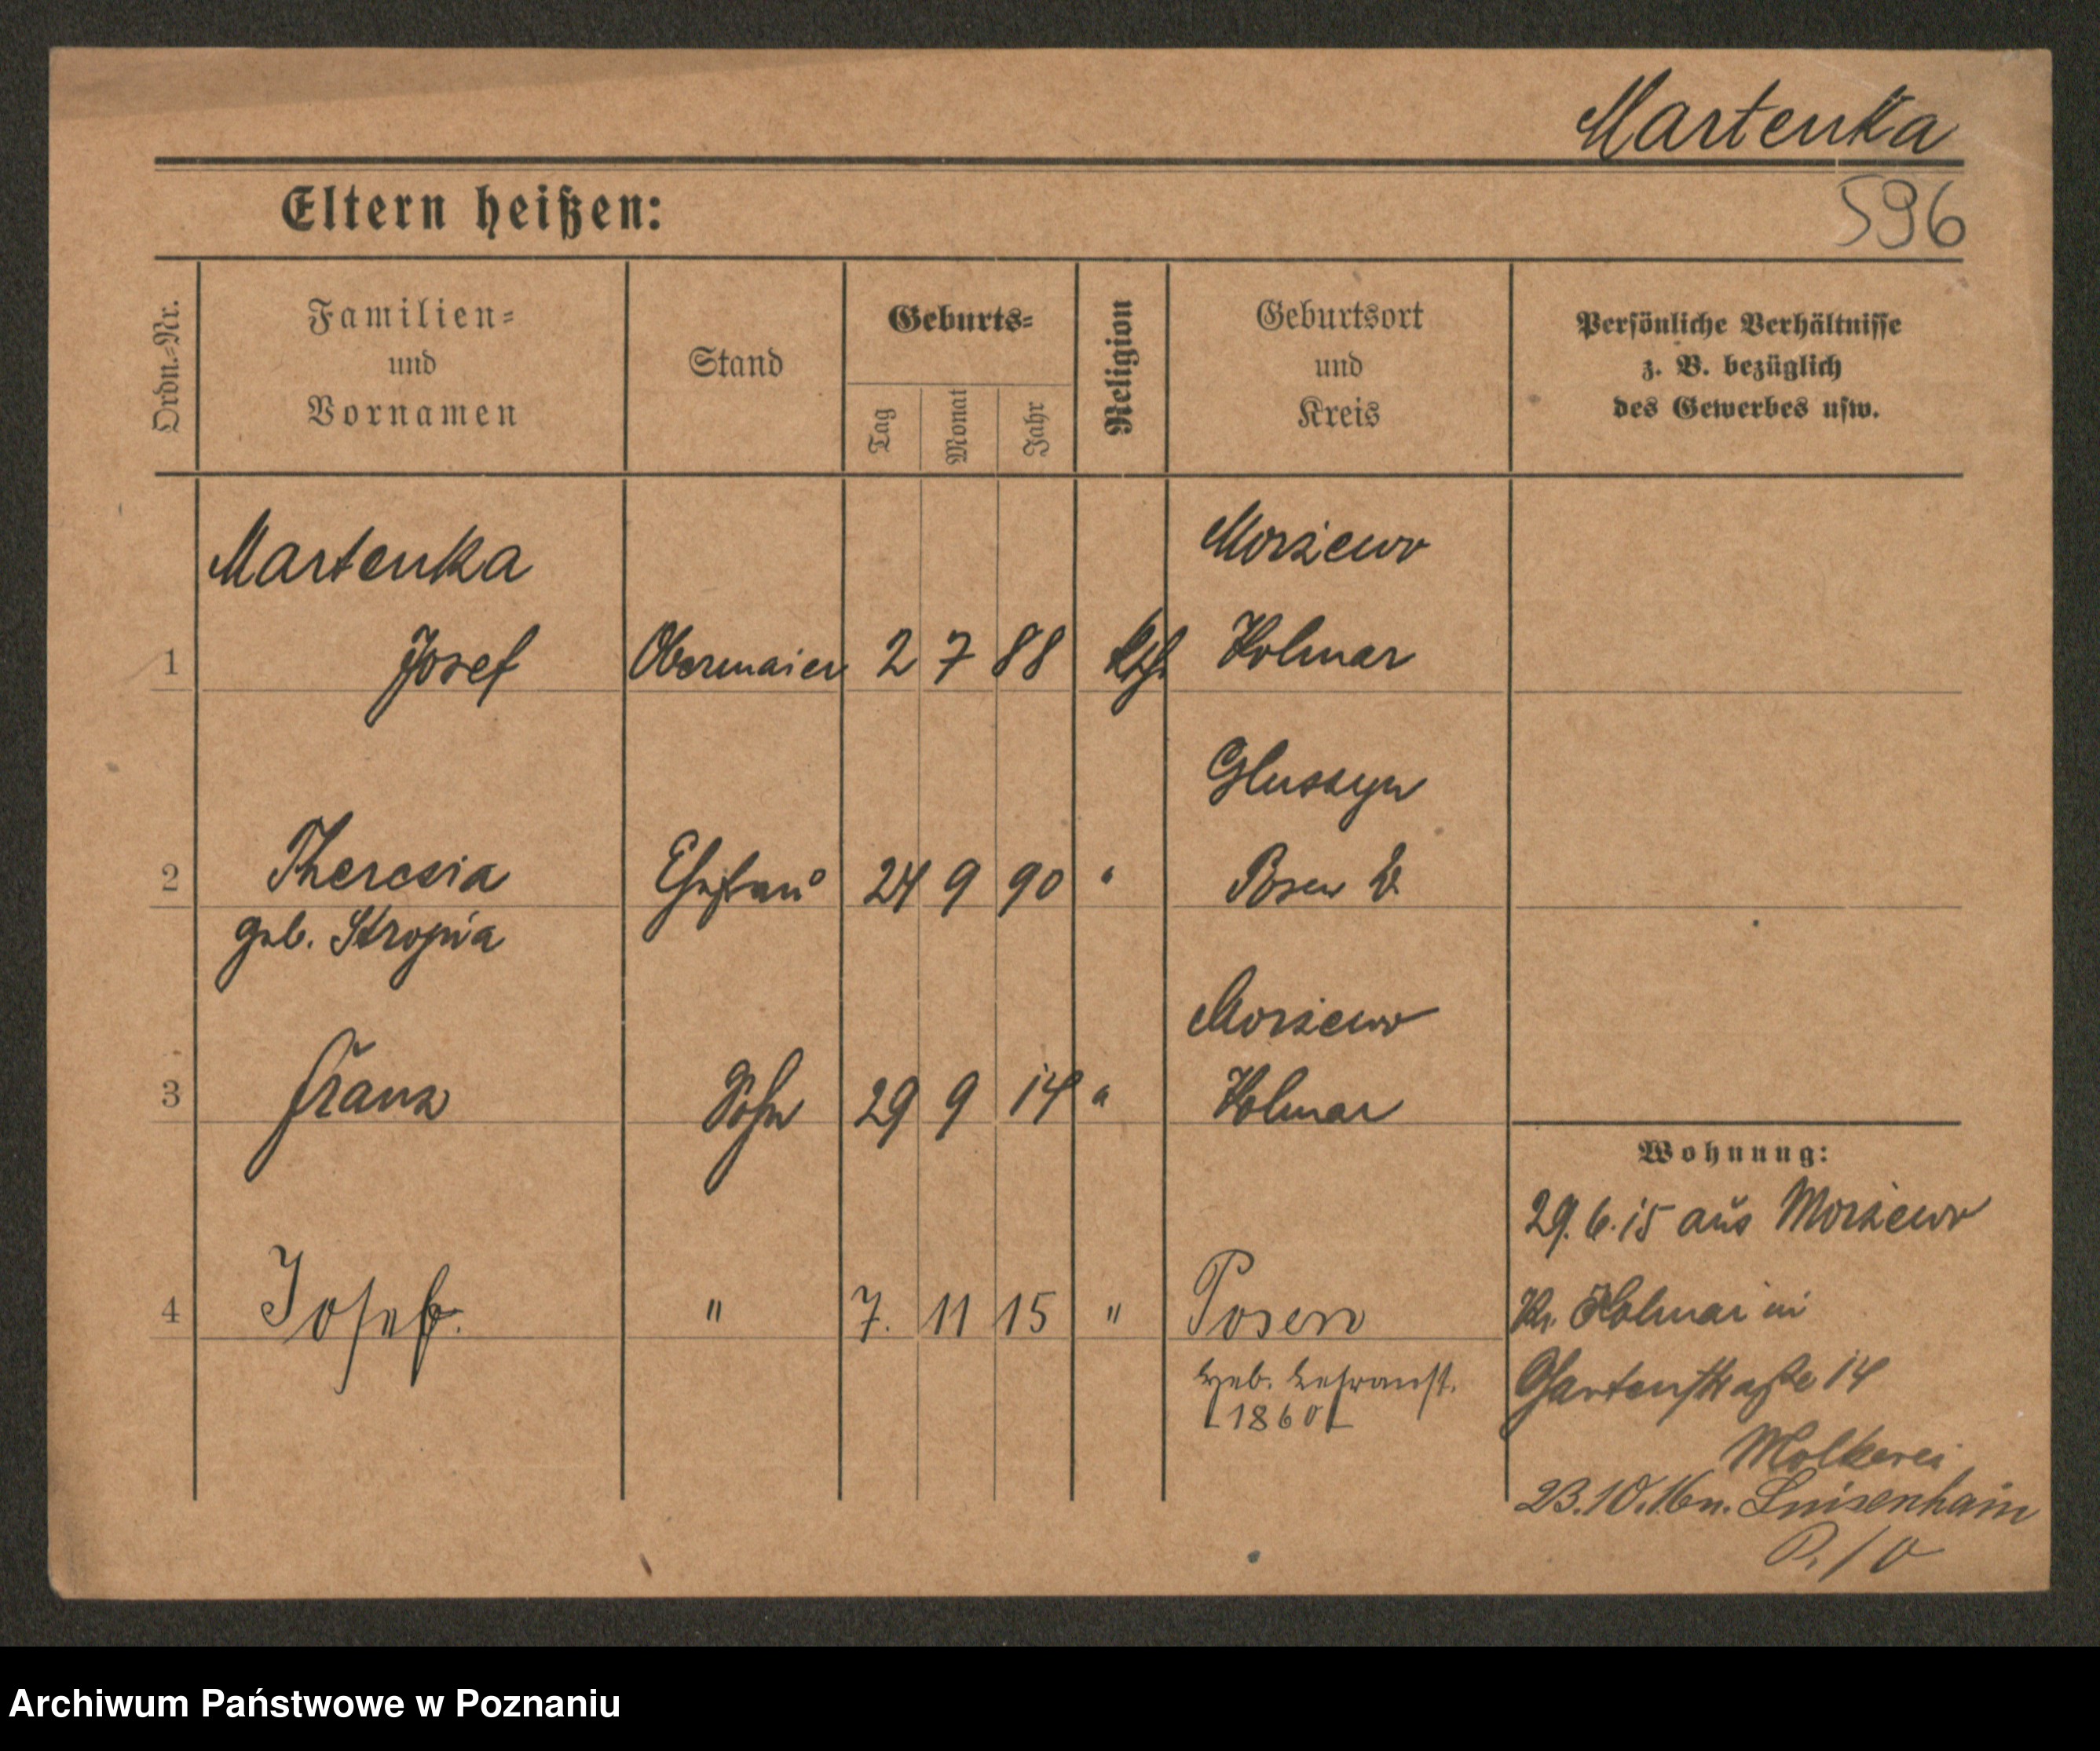 Martenka
Eltern heißen:
596
Ordn.=Nr.
Familien=
und
Vornamen
Stand
Geburts=
Tag
Monat
Jahr
Religion
Geburtsort
und
Kreis
Persönliche Verhältnisse
z. B. bezüglich
des Gewerbes usw.
Martenka
Morżewo
1 Josef Obermaier 2 7 88 kth Kolmar
Glussyn
2 Theresia Ehefrau 24 9 90 " Posen
geb. Stropia
Morżewo
3 Franz Sohn 29 9 14 " Kolmar
Wohnung:
29.6.15 aus Morżewo
4 Josef. " 7. 11 15 " Posen
Kr. Kolmar in
Heb. Lehranst.
1860
Gartenstraße 14
Molkerei
23.10.16 n. Luisenhain
P./O
Archiwum Państwowe w Poznaniu